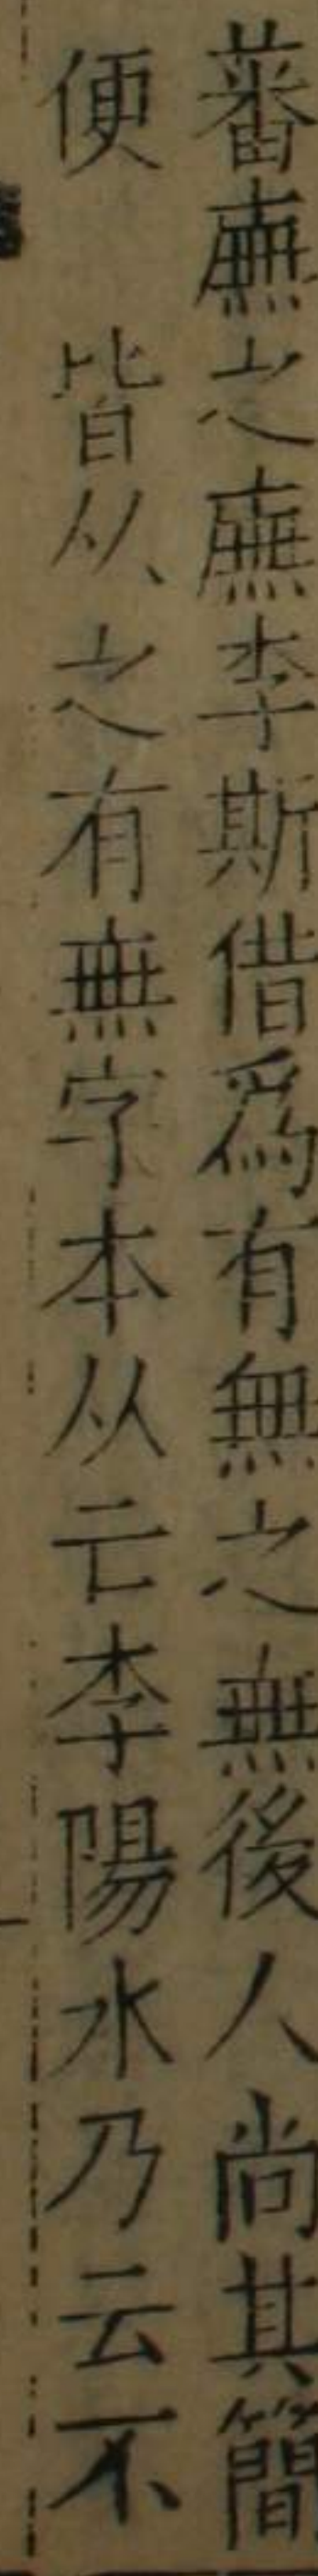 蕃廡之廡李斯借爲有無之無後人尚其簡
便 皆从之有無字本从亡李陽水乃云不